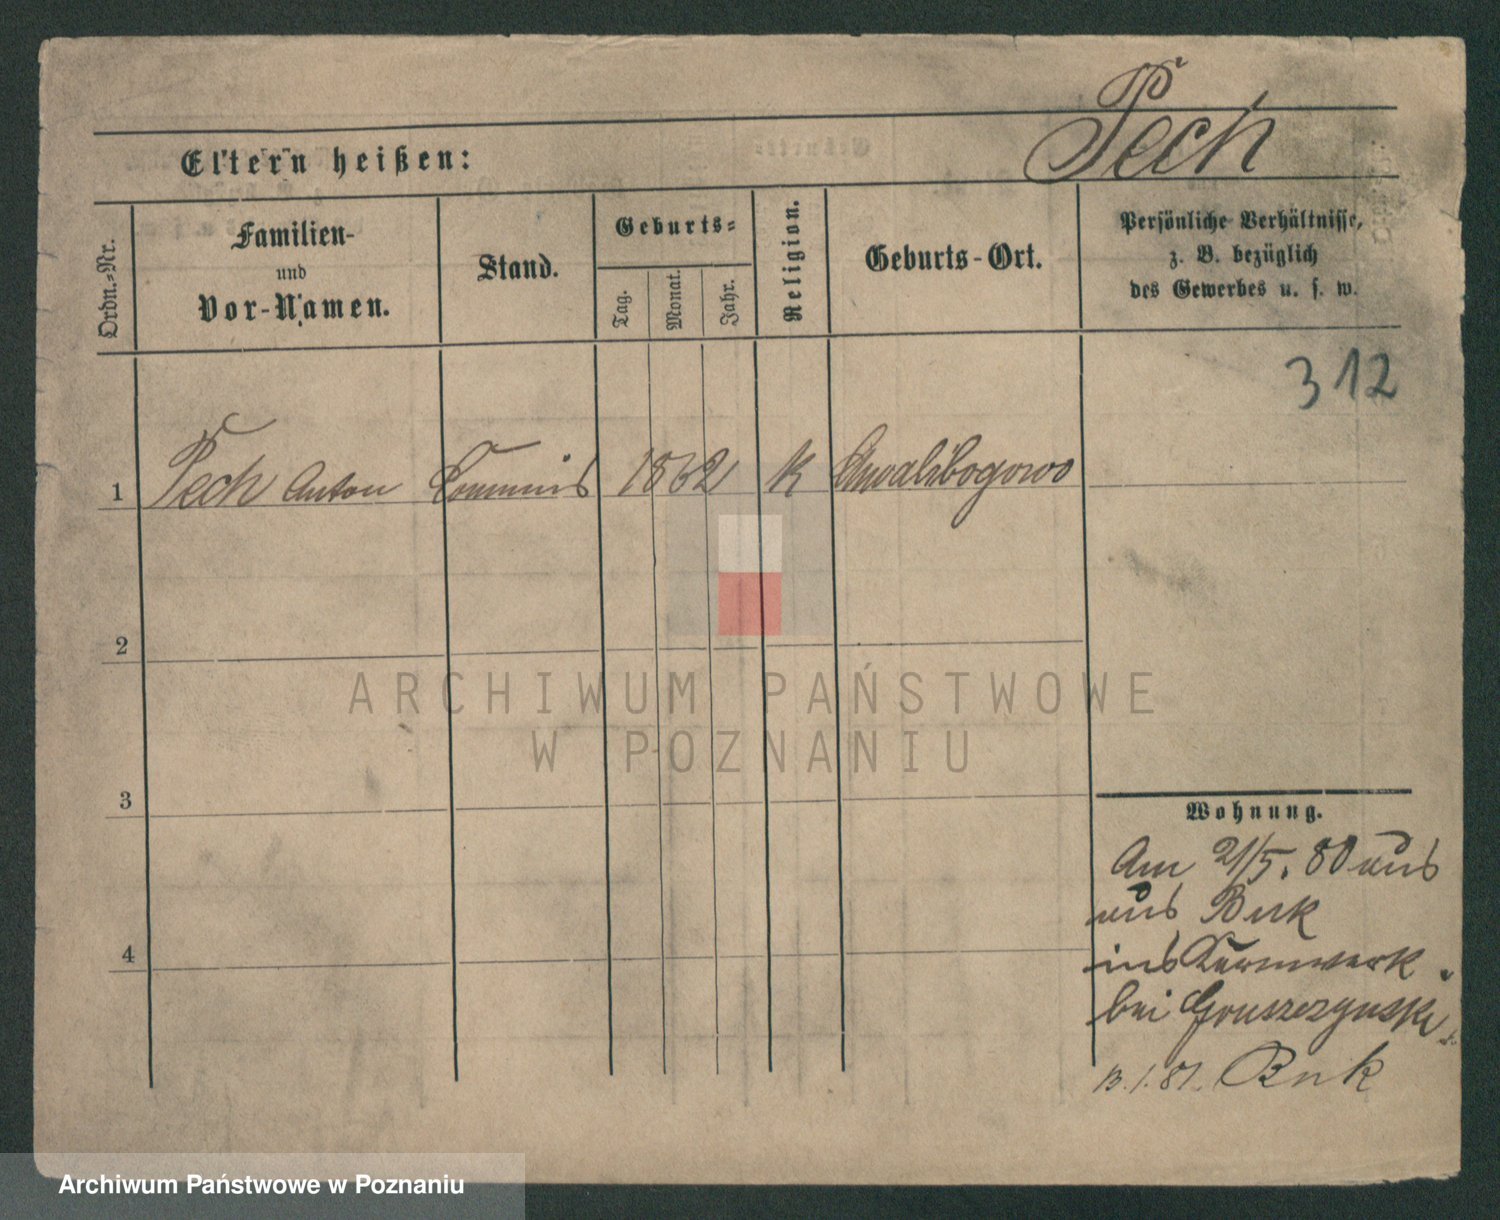 Pech
Eltern heißen:
Ordn.-Nr.
Familien-
und
Vor-Namen.
Stand.
Geburts-
Tag.
Monat.
Jahr.
Religion.
Geburts-Ort.
Persönliche Verhältnisse,
z. B. bezüglich
des Gewerbes u. s. w.
312
1 Pech Anton Commis 1862 K Chwalibogowo
2
3
4
Wohnung.
Am 21/5. 80 aus
aus Buk
ins
bei Gruszczynski
13.1.81. Buk
ARCHIWUM PAŃSTWOWE
W POZNANIU
Archiwum Państwowe w Poznaniu